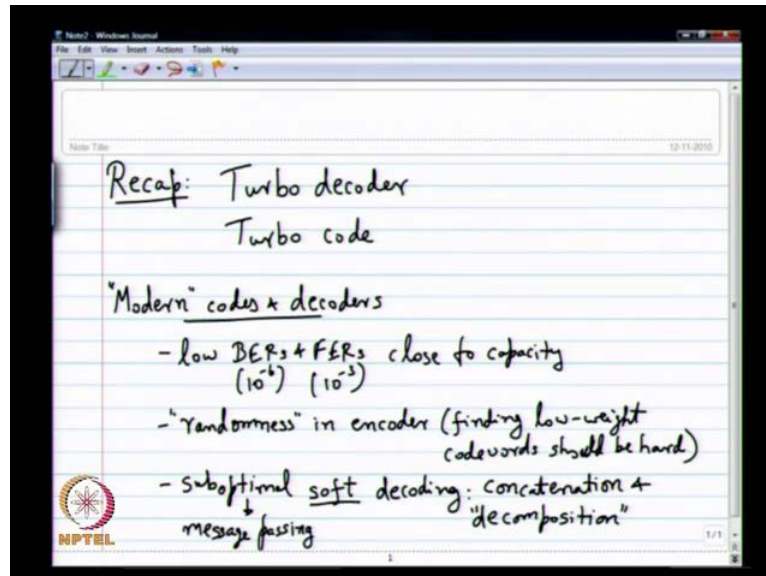 Note2 - Windows Journal
File Edit View Insert Actions Tools Help
Note Title
12-11-2010
Recap: Turbo decoder
Turbo code
"Modern" codes & decoders
- low BERs & FERs close to capacity
(10^-6) (10^-3)
- "randomness" in encoder (finding low-weight
codewords should be hard)
- suboptimal soft decoding: concatenation &
"decomposition"
message passing
NPTEL
1/1
1